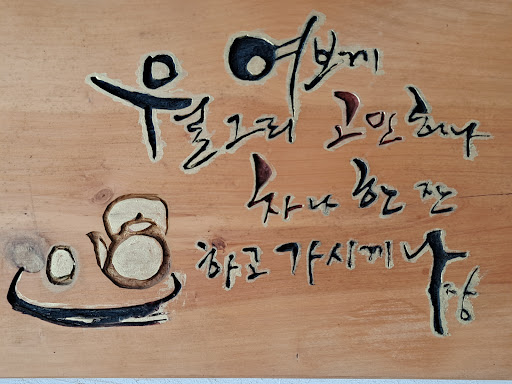 여보게
우얼 그리 고민하나
차나 한 잔
하고 가시게나